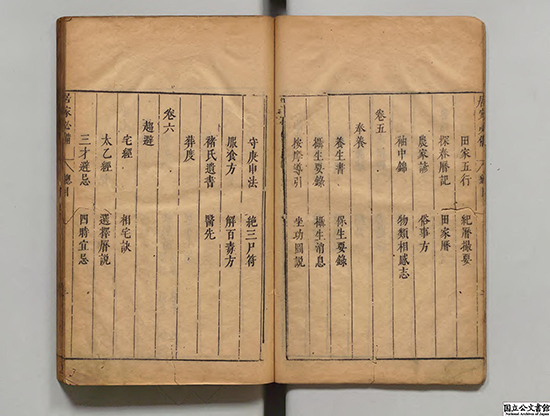 居家必備 總目
田家五行 紀曆撮要
探春曆記 田家曆
農家諺 俗事方
袖中錄 物類相感志
卷五
奉養
養生書 保生要錄
攝生要錄 攝生消息
按摩導引 坐功圖說
守庚申法 絶三尸符
服食方 解百毒方
褚氏遺書 醫先
葬度
卷六
趨避
宅經 相宅訣
太乙經 選擇曆說
三才避忌 四時宜忌
居家必備 總目
国立公文書館
National Archives of Japan